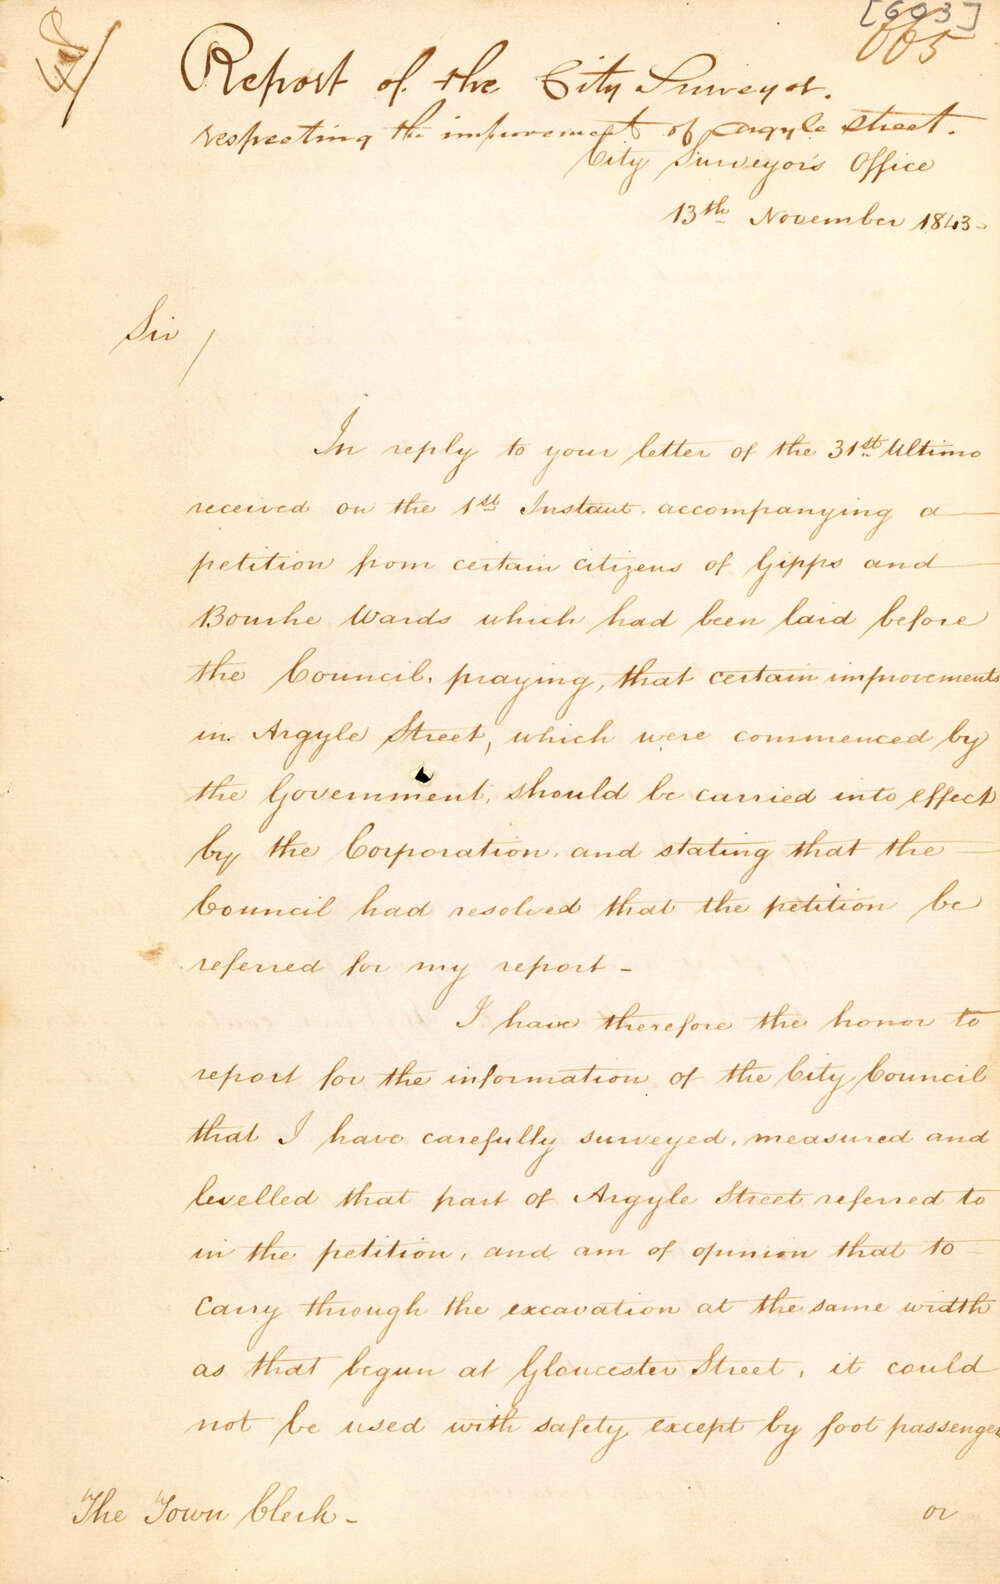 [603]
665
Report of the City Surveyor.
respecting the improvement of Argyle Street.
City Surveyor's Office
13th November 1843-
Sir /
In reply to your letter of the 31st Ultimo
received on the 1st Instant, accompanying a
petition from certain citizens of Gipps and
Bourke Wards which had been laid before
the Council, praying, that certain improvements
in Argyle Street, which were commenced by
the Government, should be carried into effect
by the Corporation, and stating that the
Council had resolved that the petition be
referred for my report -
I have therefore the honor to
report for the information of the City Council
that I have carefully surveyed, measured and
levelled that part of Argyle Street referred to
in the petition, and am of opinion that to
carry through the excavation at the same width
as that begun at Gloucester Street, it could
not be used with safety except by foot passengers
The Town Clerk -
or